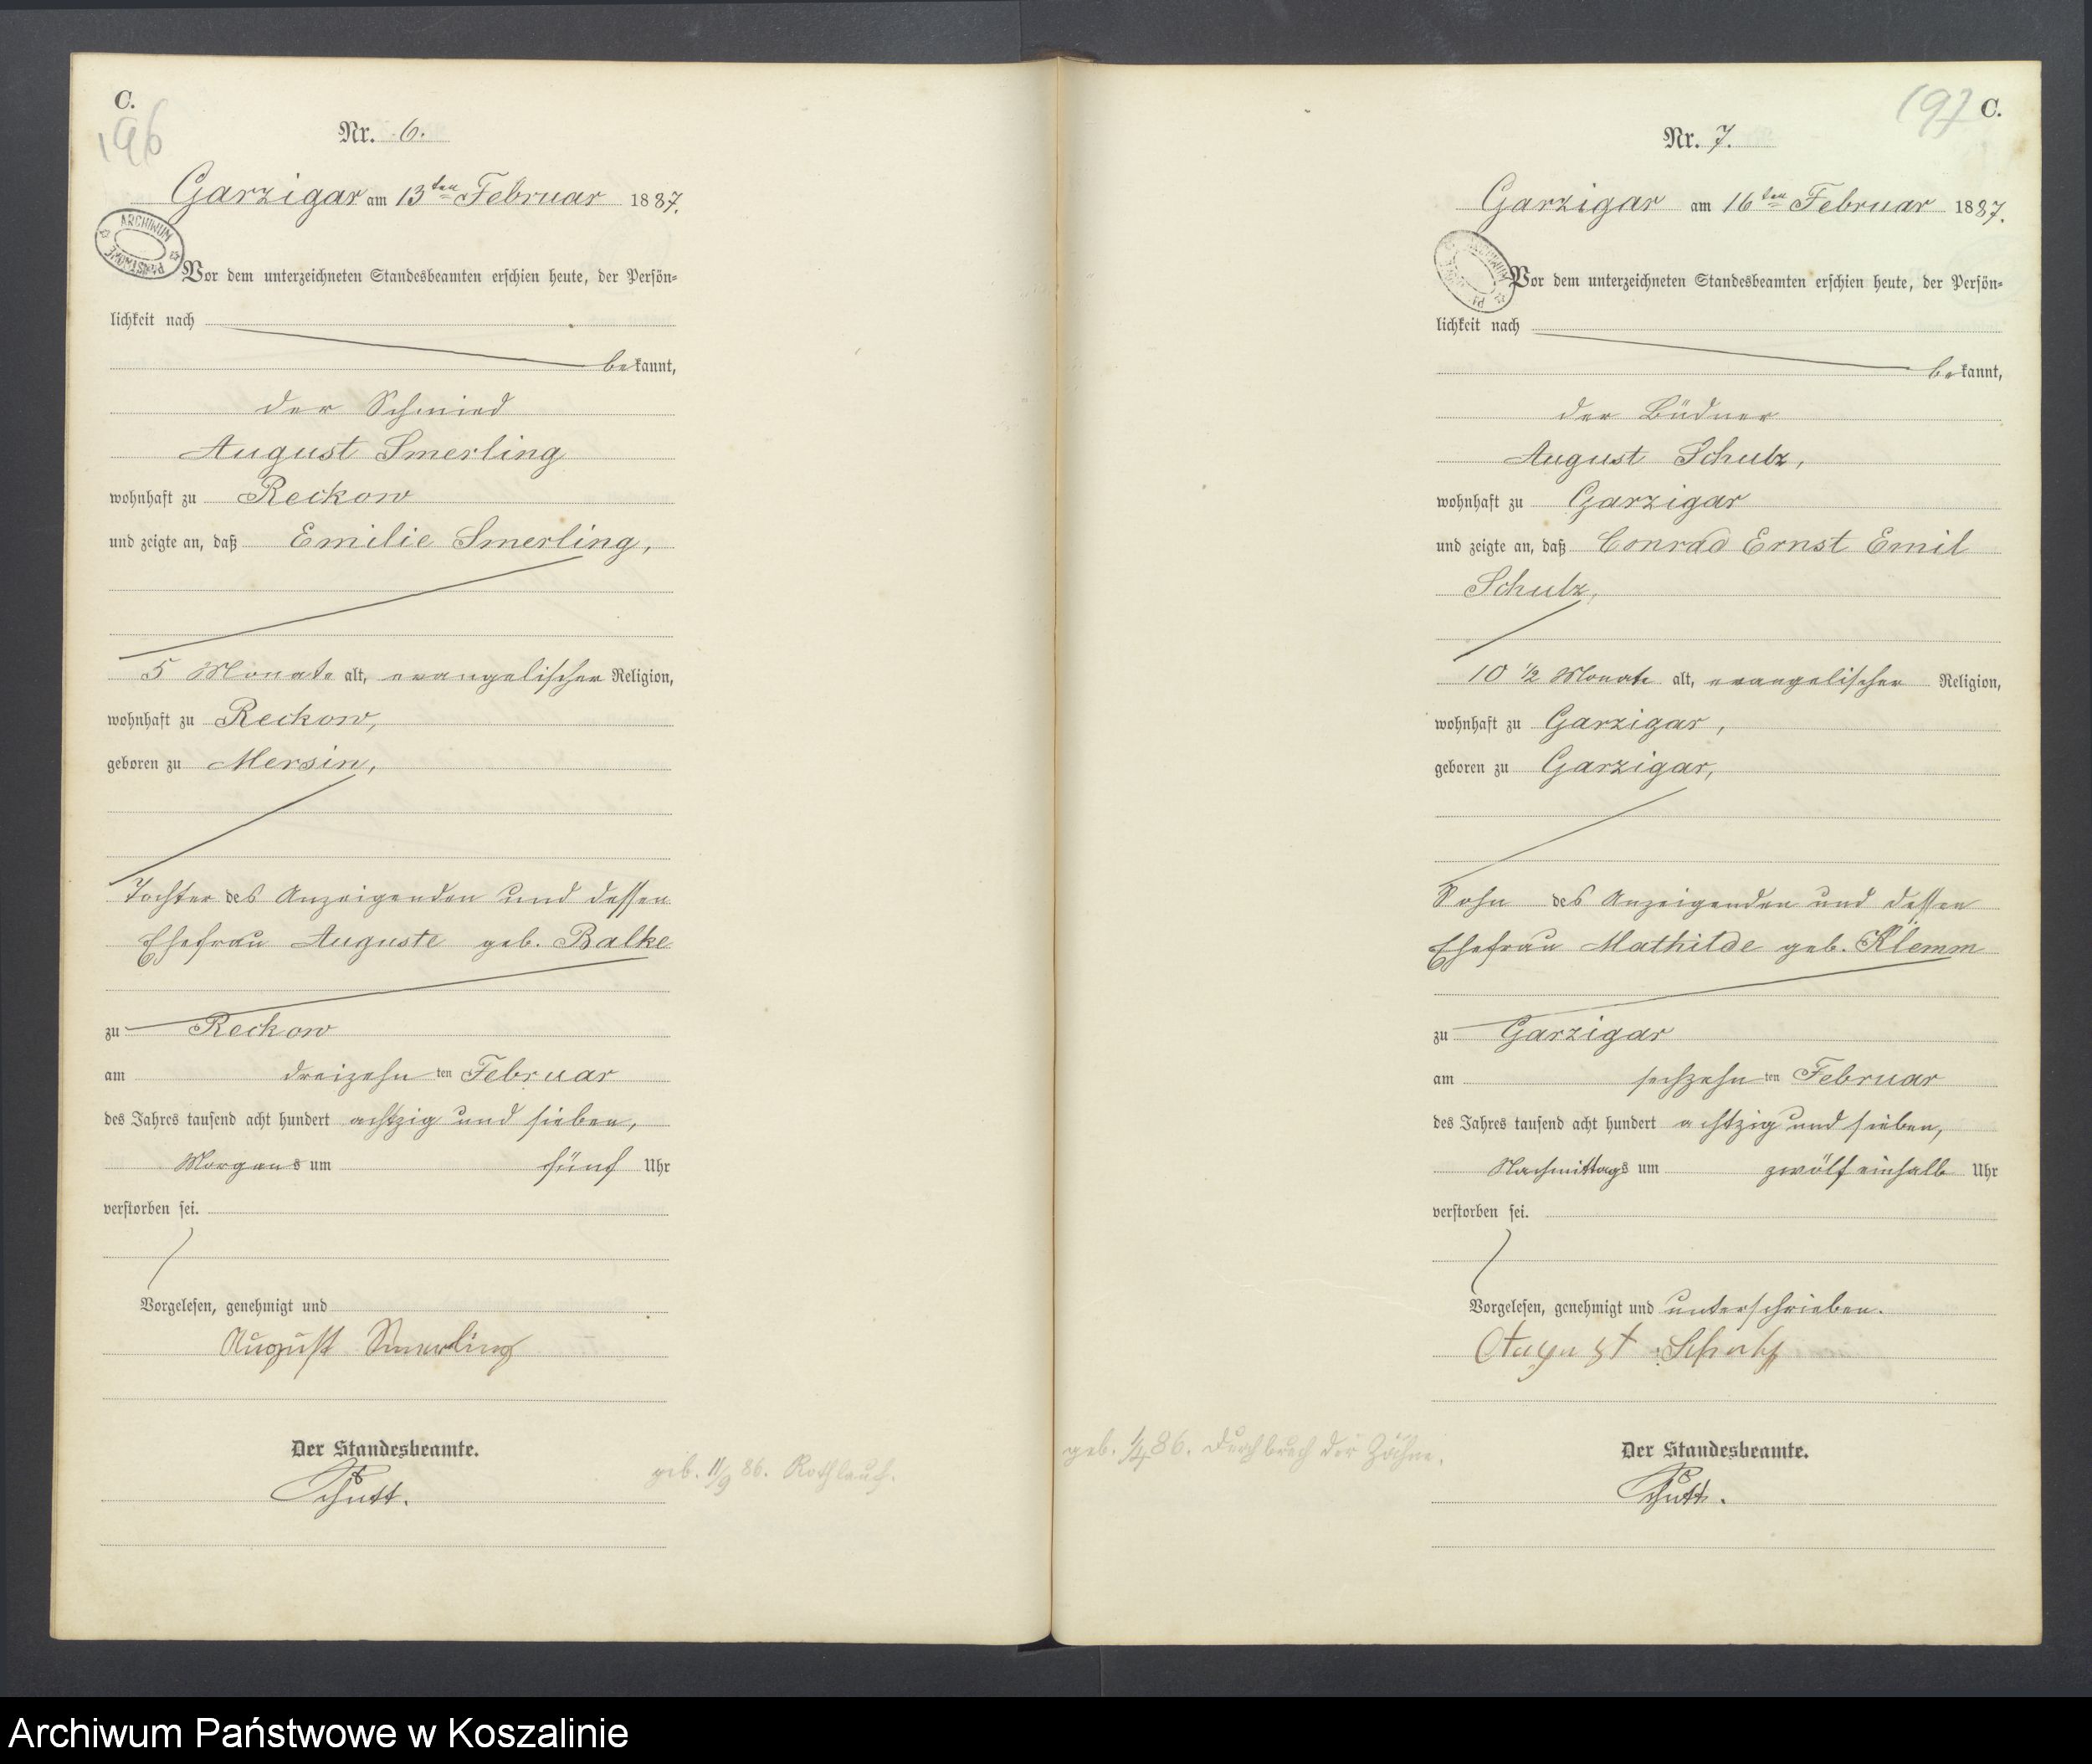 C.
196
Nr. 6.
Garzigar am 13ten Februar 1887.
ARCHIWUM PAŃSTWOWE
Vor dem unterzeichneten Standesbeamten erschien heute, der Persön-
lichkeit nach
bekannt,
der Schmied
August Smerling
wohnhaft zu Reckow
und zeigte an, daß Emilie Smerling,
5 Monate alt, evangelischer Religion,
wohnhaft zu Reckow,
geboren zu Mersin,
Tochter des Anzeigenden und dessen
Ehefrau Auguste geb. Balke
zu Reckow
am dreizehn ten Februar
des Jahres tausend acht hundert achtzig und sieben,
Morgens um fünf Uhr
verstorben sei.
Vorgelesen, genehmigt und
August Smerling
Der Standesbeamte.
Schutt.
geb. 11/9 86. Rothlauf.
197 C.
Nr. 7.
Garzigar am 16ten Februar 1887.
ARCHIWUM
Vor dem unterzeichneten Standesbeamten erschien heute, der Persön-
lichkeit nach
bekannt,
der Büdner
August Schulz,
wohnhaft zu Garzigar
und zeigte an, daß Conrad Ernst Emil
Schulz,
10 1/2 Monate alt, evangelischer Religion,
wohnhaft zu Garzigar,
geboren zu Garzigar,
Sohn des Anzeigenden und dessen
Ehefrau Mathilde geb. Klemm
zu Garzigar
am sechzehn ten Februar
des Jahres tausend acht hundert achtzig und sieben,
Nachmittags um zwölf einhalb Uhr
verstorben sei.
Vorgelesen, genehmigt und unterschrieben.
August Schulz
Der Standesbeamte.
Schutt.
geb. 1/4 86. Durchbruch der Zähne.
Archiwum Państwowe w Koszalinie